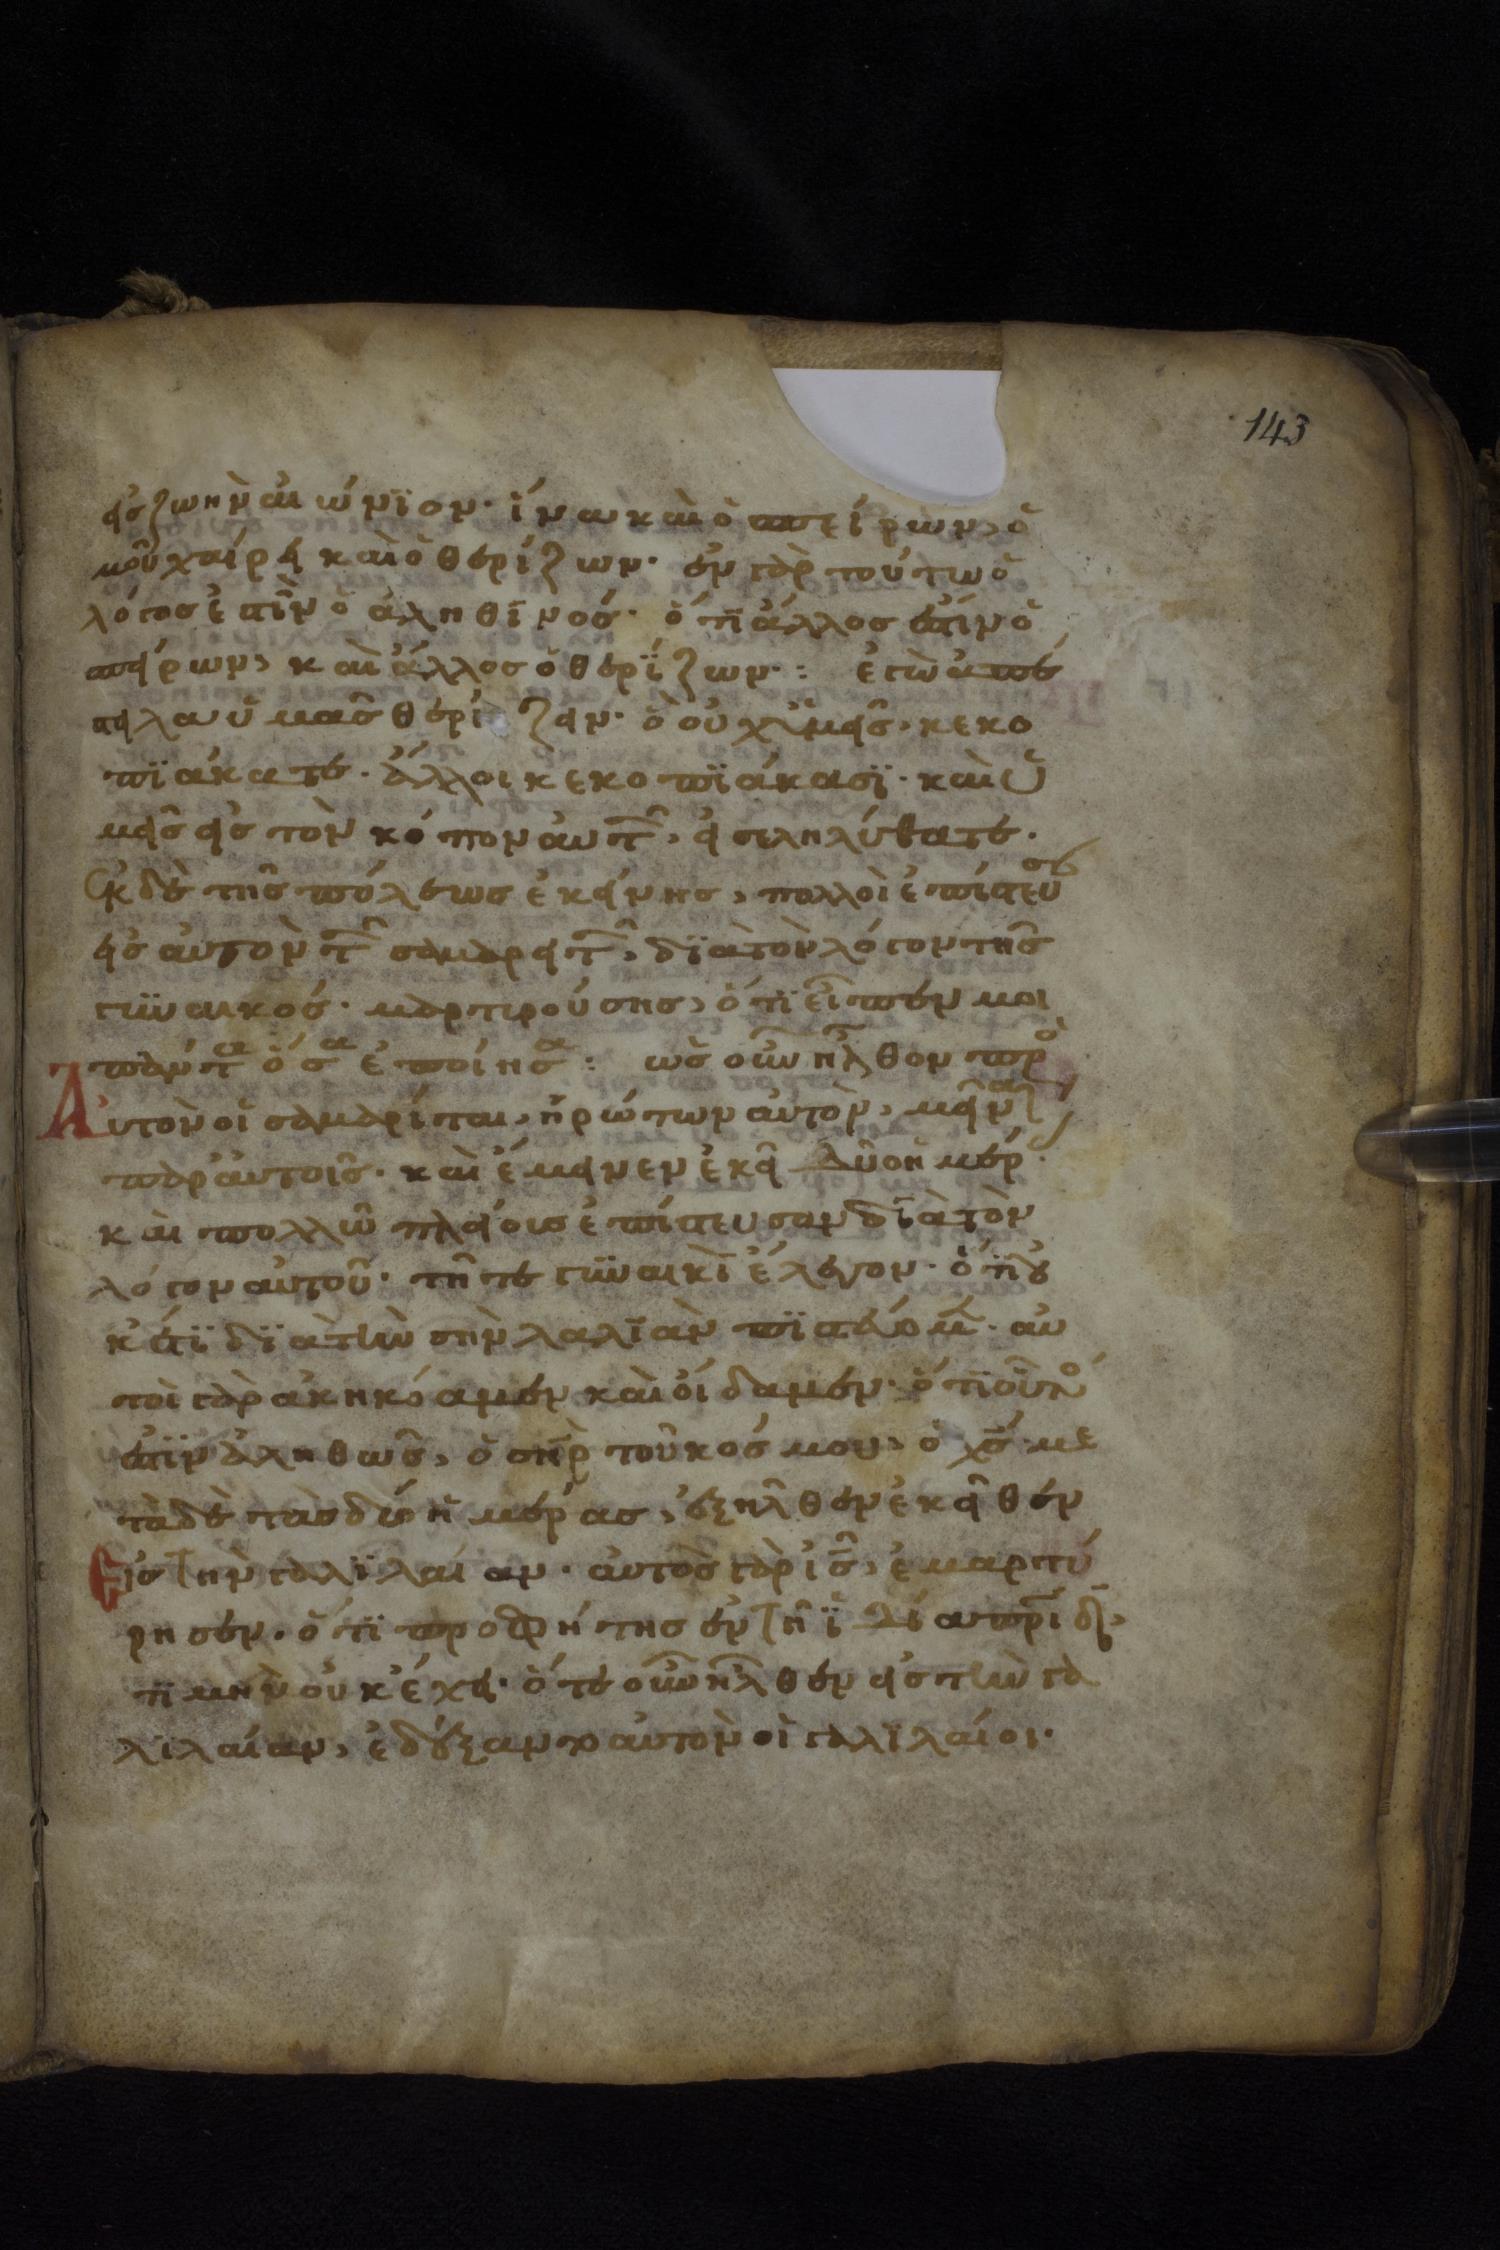 143
εἰς ζωὴν αἰώνϊον· ἵνα καὶ ὁ σπείρων, ὁ
μοῦ χαίρει καὶ ὁ θερίζων· ἐν γὰρ τούτω ὁ
λόγος ἐστὶν ὁ ἀληθϊνός· ὅτι ἄλλος ἐστὶν ὁ
σπείρων, καὶ ἄλλος ὁ θερΐζων·: ἐγὼ ἀπέ
στειλα ὑμᾶς θερίζειν· ὃ οὐχ ὑμεῖς, κεκο
πϊάκατε. ἄλλοι κεκοπϊάκασϊ· καὶ ὑ
μεῖς εἰς τὸν κόπον αὐτ͂, εἰσεληλύθατε.
Ἐκ δὲ τῆς πόλεως ἐκείνης, πολλοὶ ἐπίστευσ
εἰς αὐτὸν τ͂ σαμαρειτ͂, δϊὰ τὸν λόγον τῆς
γϋναικός· μαρτυρούσης, ὅτϊ εἶπέν μοι
πάντα ὅσα ἐποίησα: ὡς οὖν ἦλθον πρὸ
Αὐτὸν οἱ σαμαρίται, ἠρώτων αὐτὸν, μεῖναι
παρ' αὐτοῖς· καὶ ἔμεινεν ἐκεῖ δύο ἡμέρ·
καὶ πολλῶ πλείοις ἐπίστευσαν δϊὰ τὸν
λόγον αὐτοῦ· τῆ τε γϋναικὶ ἔλεγον· ὅτϊ οὐ
κέτϊ δϊὰ τὴν σὴν λαλϊὰν πϊστεύομ͂. αὐ
τοὶ γὰρ ἀκηκόαμεν καὶ οἴδαμεν· ὅτϊ οὗτό
ἐστϊν ἀληθῶς, ὁ σὴρ τοῦ κόσμου, ὁ χς· με
τὰ δὲ τὰς δύο ἡμέρας, ἐξῆλθεν ἐκεῖθεν
Εἰς τὴν γαλϊλαίαν· αὐτὸς γὰρ ις, ἐμαρτύ
ρησεν· ὅτϊ προφήτης ἐν τῆ ϊδία πρΐδϊ,
τϊμὴν οὐκ ἔχει· ὅτε οὖν ἦλθεν εἰς τὴν γα
λϊλαίαν, ἐδέξαντο αὐτὸν οἱ γαλϊλαίοι·